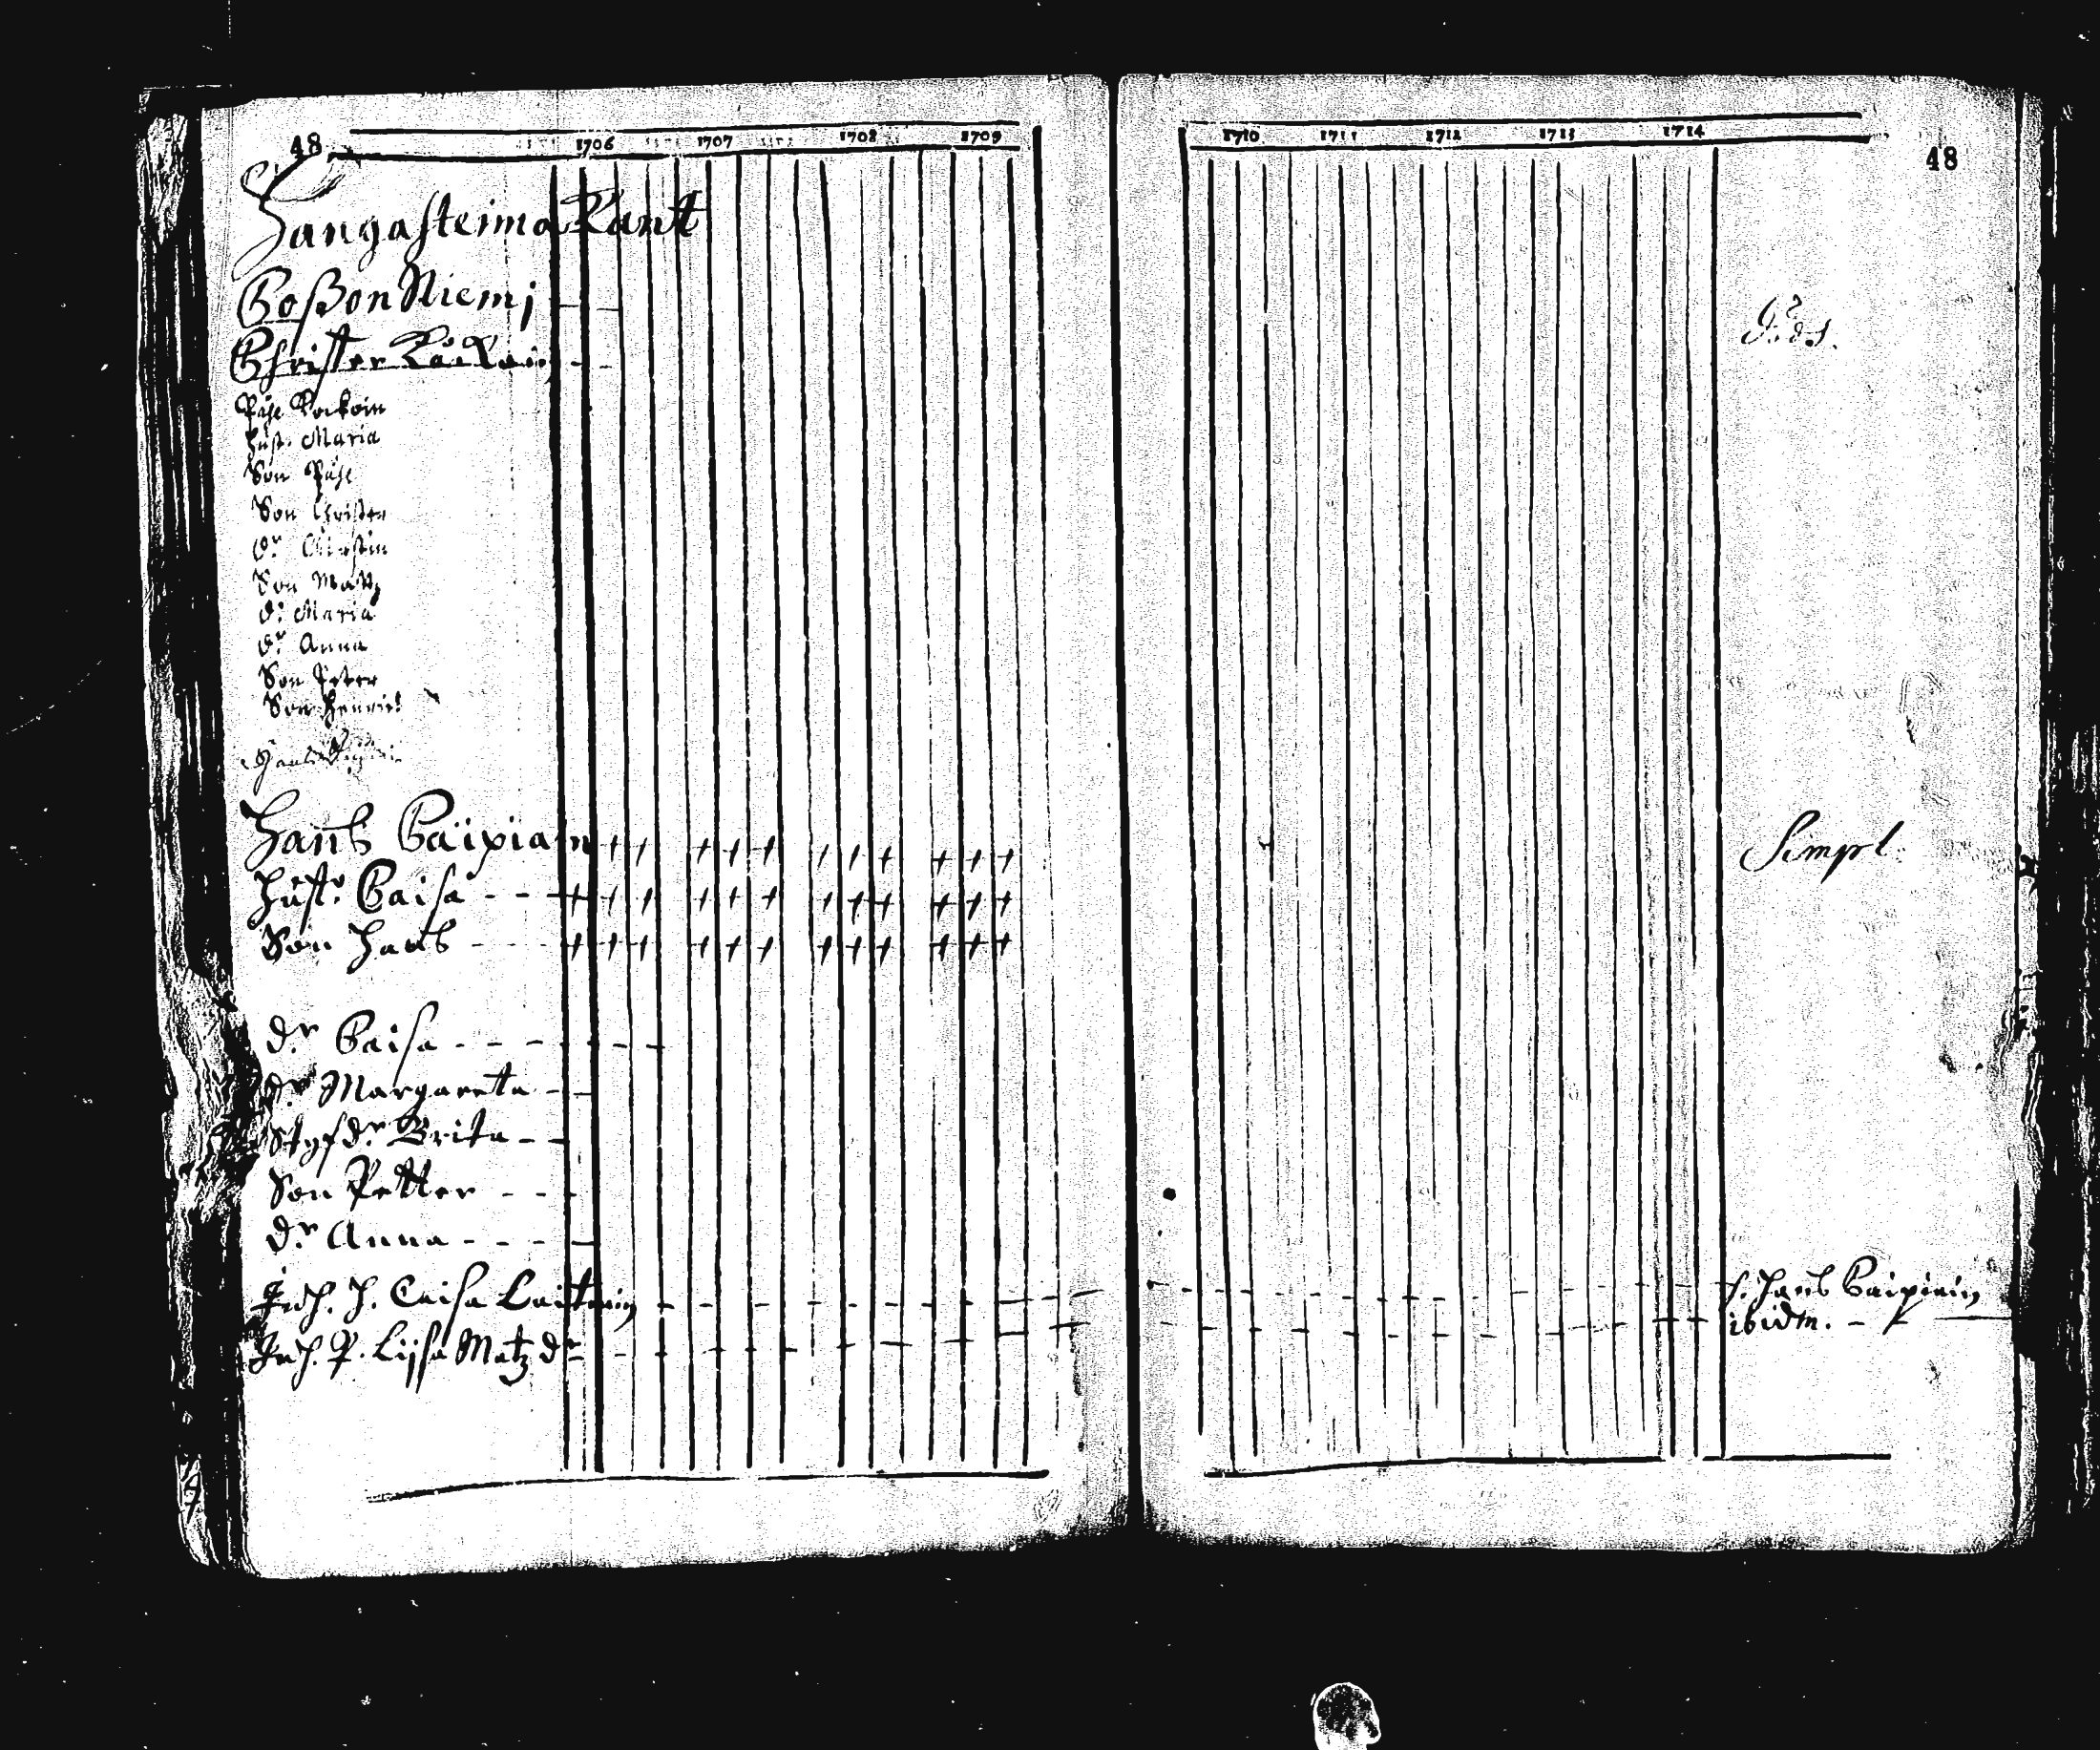 48 1706 1707 1708 1709
Hangasteima Kant
Coßon Niemj
Christer
Påhl
Hust. Maria
Son Påhl
Son Christer
d:r Christin
Son Matz
d:r Maria
d:r Anna
Son Peter
Son Henrich
Hans
Hans Caipiain
Hust:r Caisa
Son Hans
d:r Caisa
d:r Margareta
Styfd:r Brita
Son Petter
d:r Anna
Inh. H. Caisa
Inh. P. Lijsa Matz dr
1710 1711 1712 1713 1714
48
Simpl
f. Hans Caipiain
ibidm.